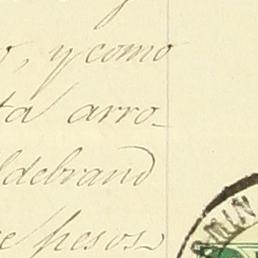 o, y como
ta arro-
ldebrand
e pesos
MIN